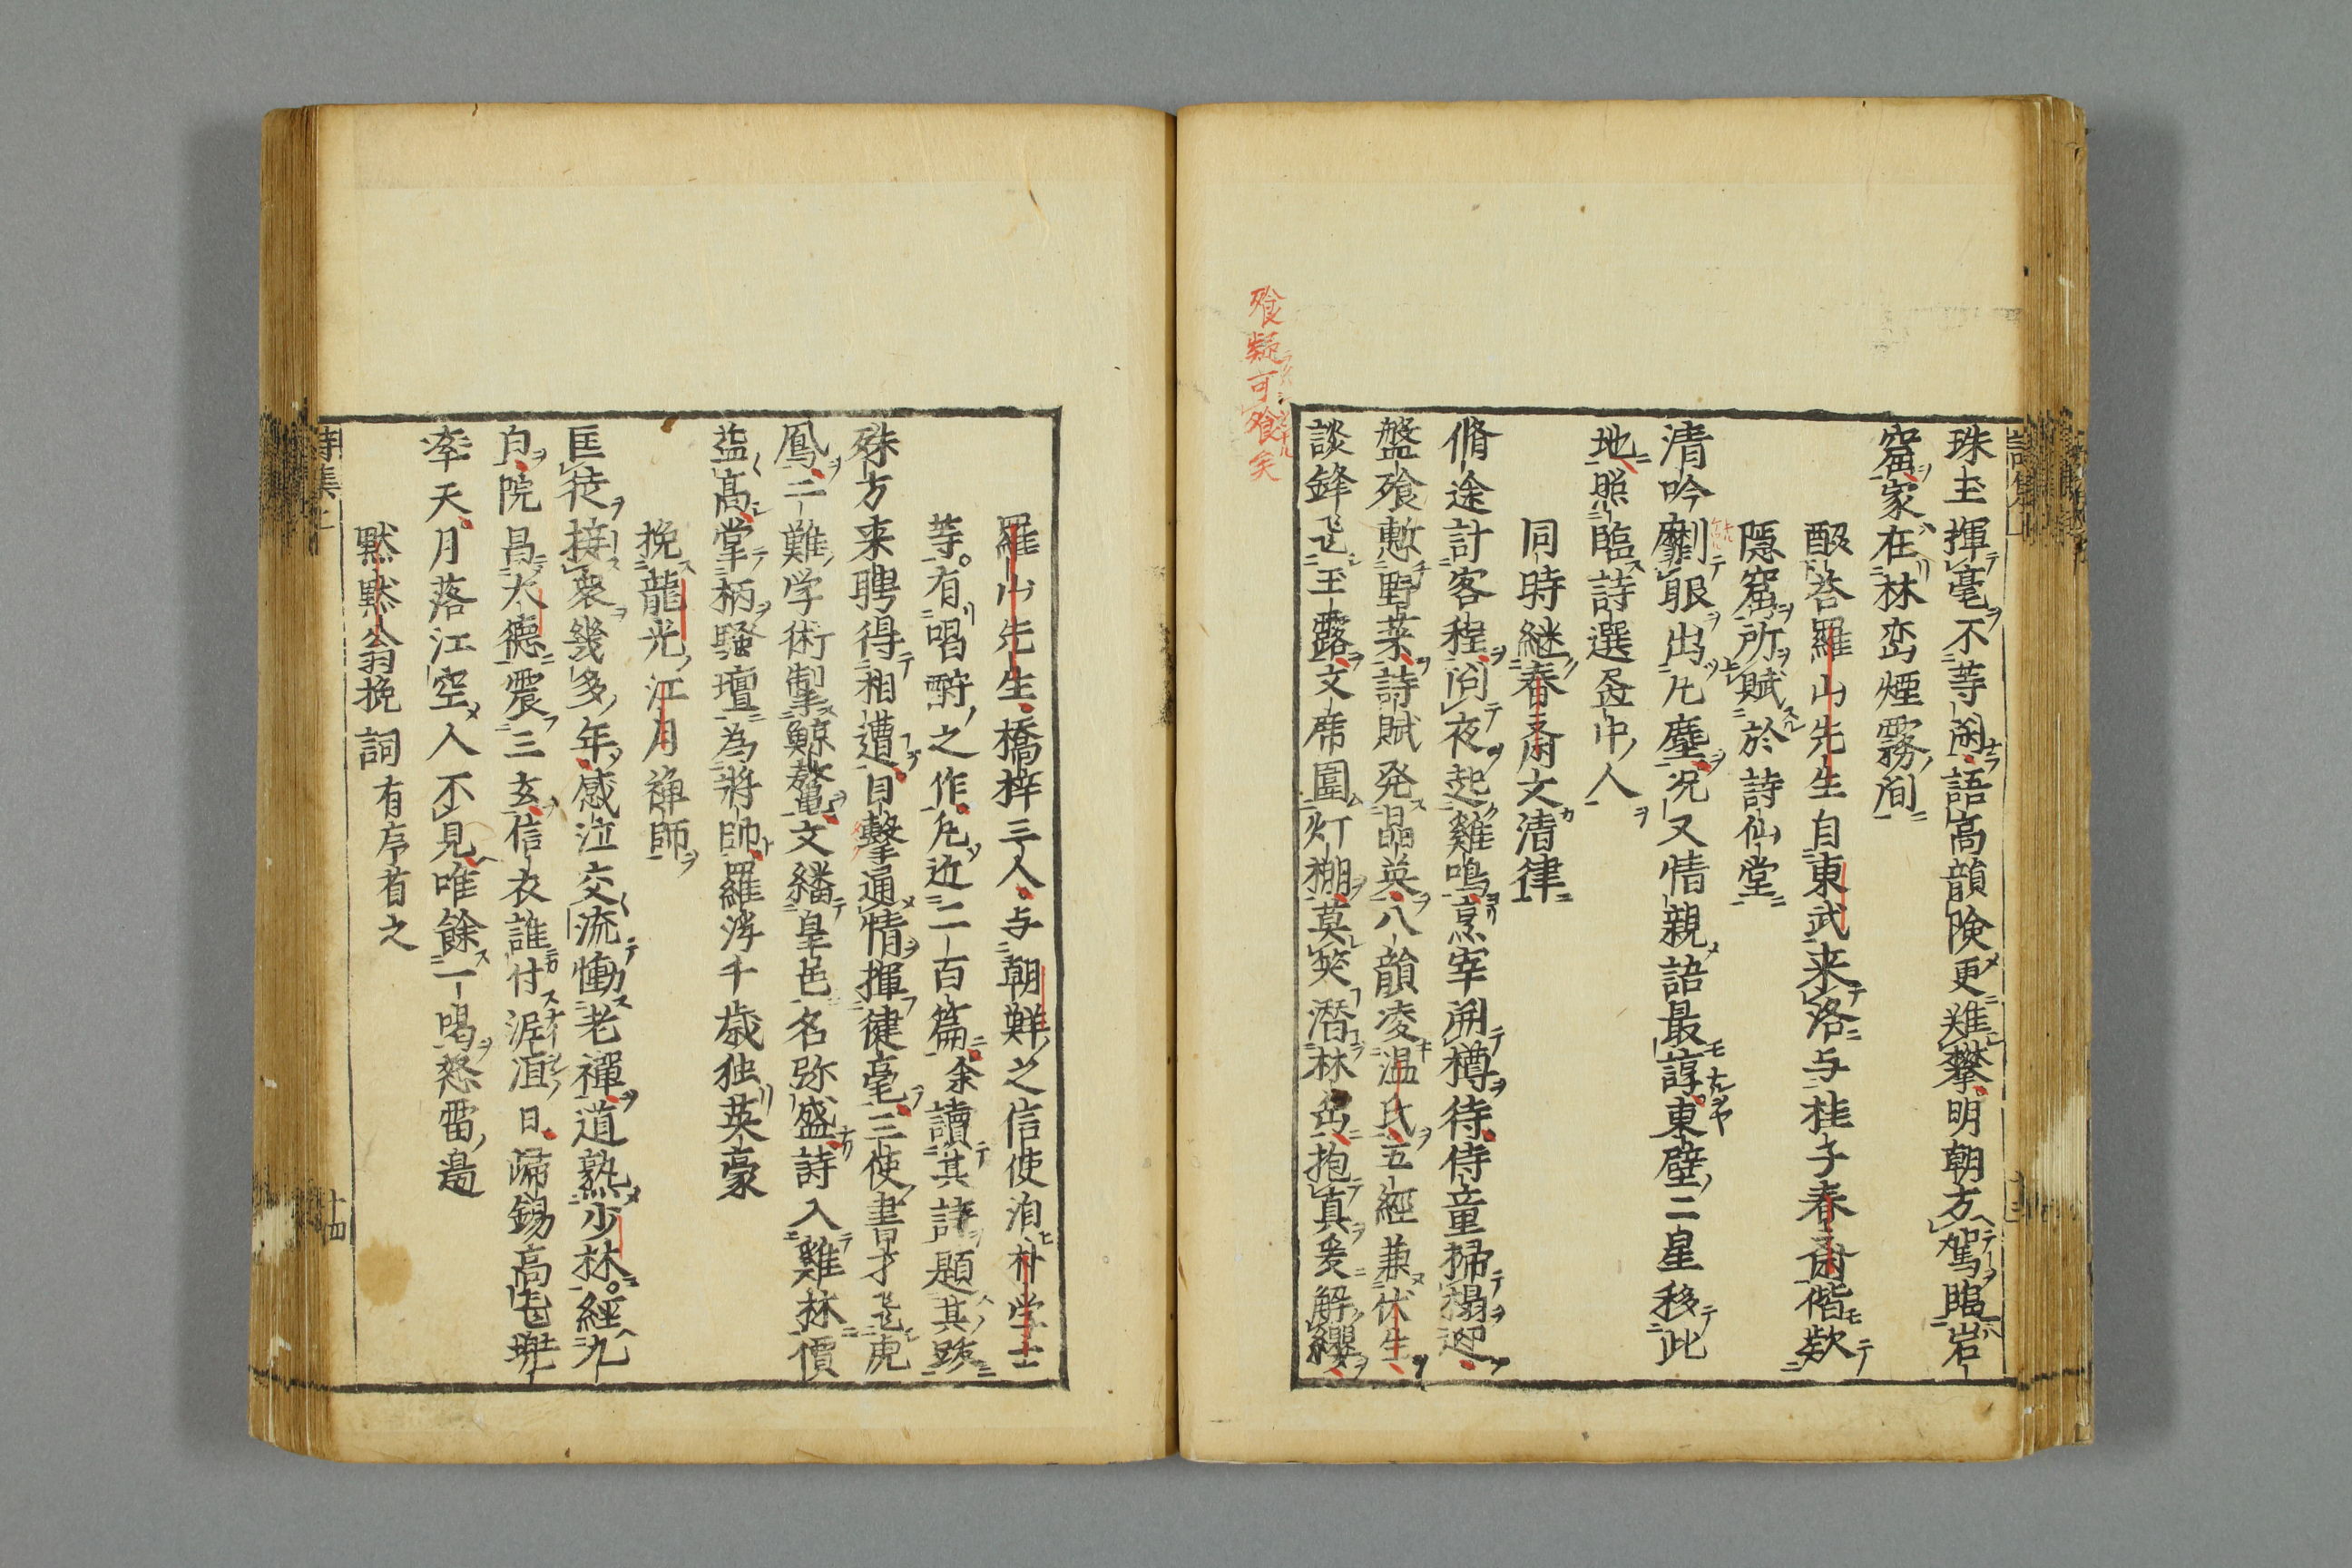 珠玉揮毫不等閑語高韻険更難攀明朝方駕臨岩
窟家在林峦煙霧間
酘答羅山先生自東武来洛与桂子春斎偕欵
隠窟所賦於詩仙堂
清吟劘眼出凢塵况又情親語最諄東壁二星移此
地照臨詩選盃中人
同時継春斎文清律
脩途計客程閲夜起雞鳴烹宰洌樽待侍童掃榻迎
盤飱慙野菜詩賦発晶英八韻凌温氏五經兼伏生
談鋒飞玉露文席圍灯棚莫笑潜林岳抱真爰解纓
飱疑可飧矣
羅山先生橋梓三人与朝鮮之信使洎朴学士
等有唱酧之作凢近二百篇余讀其詩題其跋
殊方来聘得相遭目擊通情揮健毫三使書才飞虎
鳳二難学術掣鯨鼇文繙皇邑名弥盛詩入雞林價
益高堂柄騷壇為將師羅浮千歳独英豪
挽龍光江月禅師
匡徒接衆幾多年感泣交流慟老禪道熟少林經九
白院昌大德震三玄信衣誰付涅洹日歸錫高飞
率天月落江空人不見唯餘一喝怒雷邊
黙黙翁挽詞有序省之
詩集上
十四